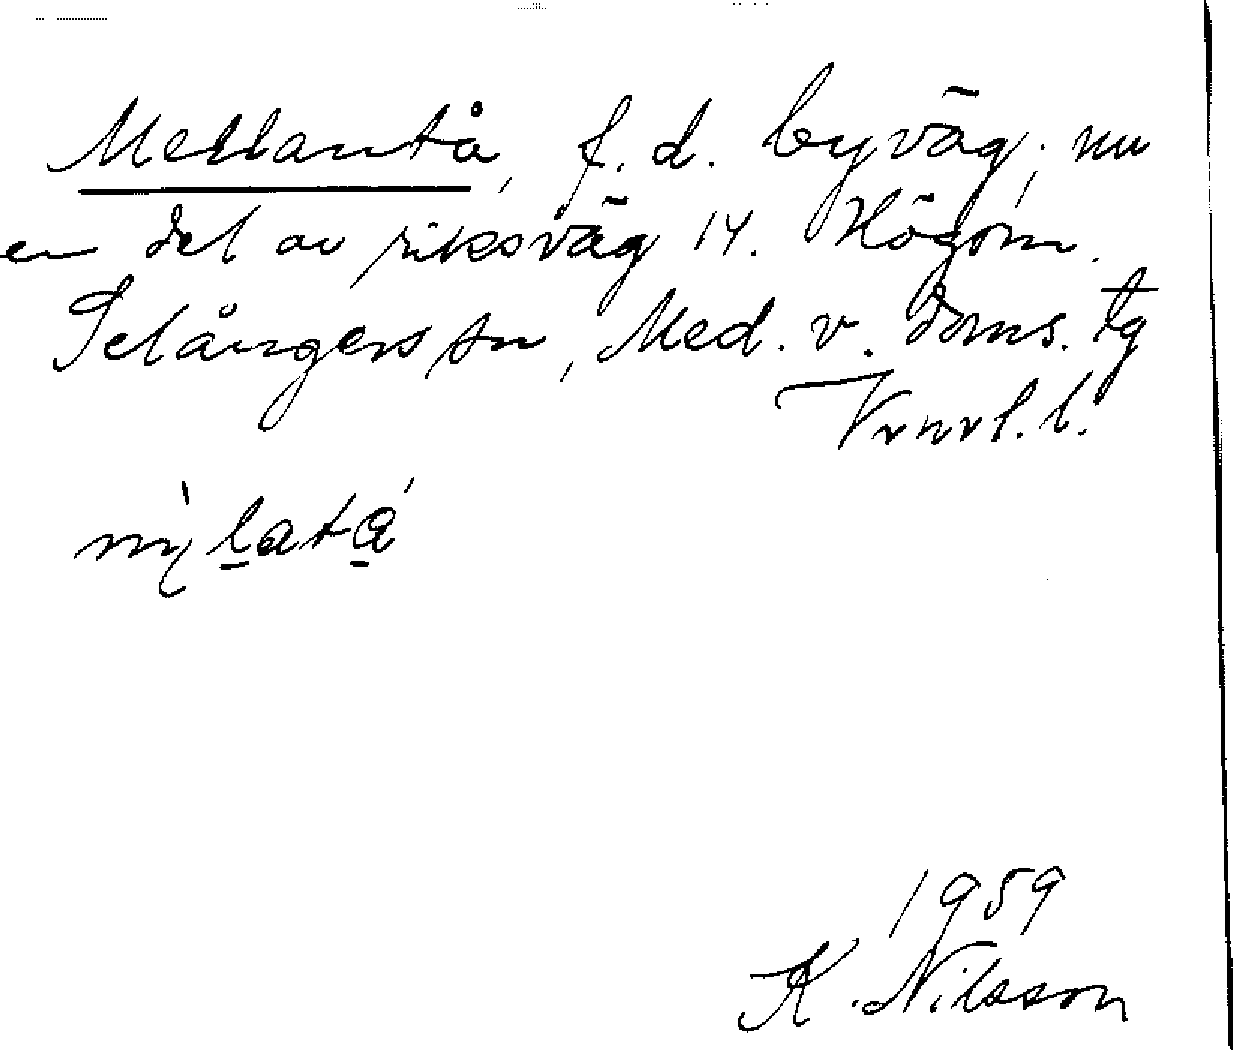 Mellantå, f. d. byväg; nu
en del av riksväg 14. Högom.
Selångers sn, Med. v. doms. tg
Vrnrl. l.
1959
K. Nilsson